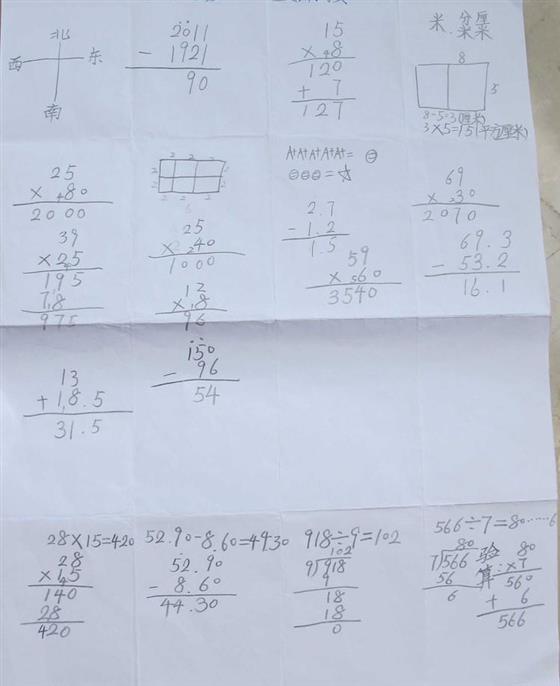 北
西 东
南
2011
- 1921
90
15
× 8
120
+ 7
127
米、分米 厘米
8
5
8-5=3(厘米)
3×5=15(平方厘米)
25
× 80
2000
2 2 2
2 2
2 2
2 2 2
A+A+A+A+A+=㊀
㊀㊀㊀=☆
69
× 30
2070
39
×25
195
78
975
25
× 40
1000
2.7
- 1.2
1.5
69.3
- 53.2
16.1
12
× 8
96
59
× 60
3540
13
+ 18.5
31.5
150
- 96
54
28×15=420
28
×15
140
28
420
52.90-8.60=4930
52.90
- 8.60
44.30
918÷9=102
102
9 918
9
18
18
0
566÷7=80……6
80
7 566
56
6
验算:
80
×7
560
+ 6
566